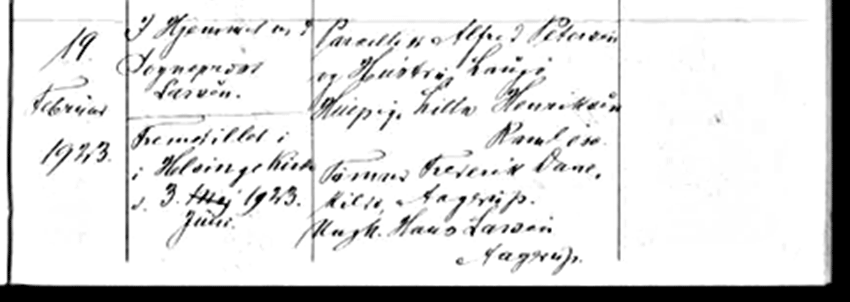 19.
Februar
1923.
I Hjemmet af
Sognepræst
Larsen.
Fremstillet i
i Helsinge Kirke
d. 3. Maj 1923.
Juni.
Parcellist Alfred Petersen
og Hustru
Huspige Lilla Henriksen
Tømrer Frederik
Aagerup.
Ungk. Hans Larsen
Aagerup.